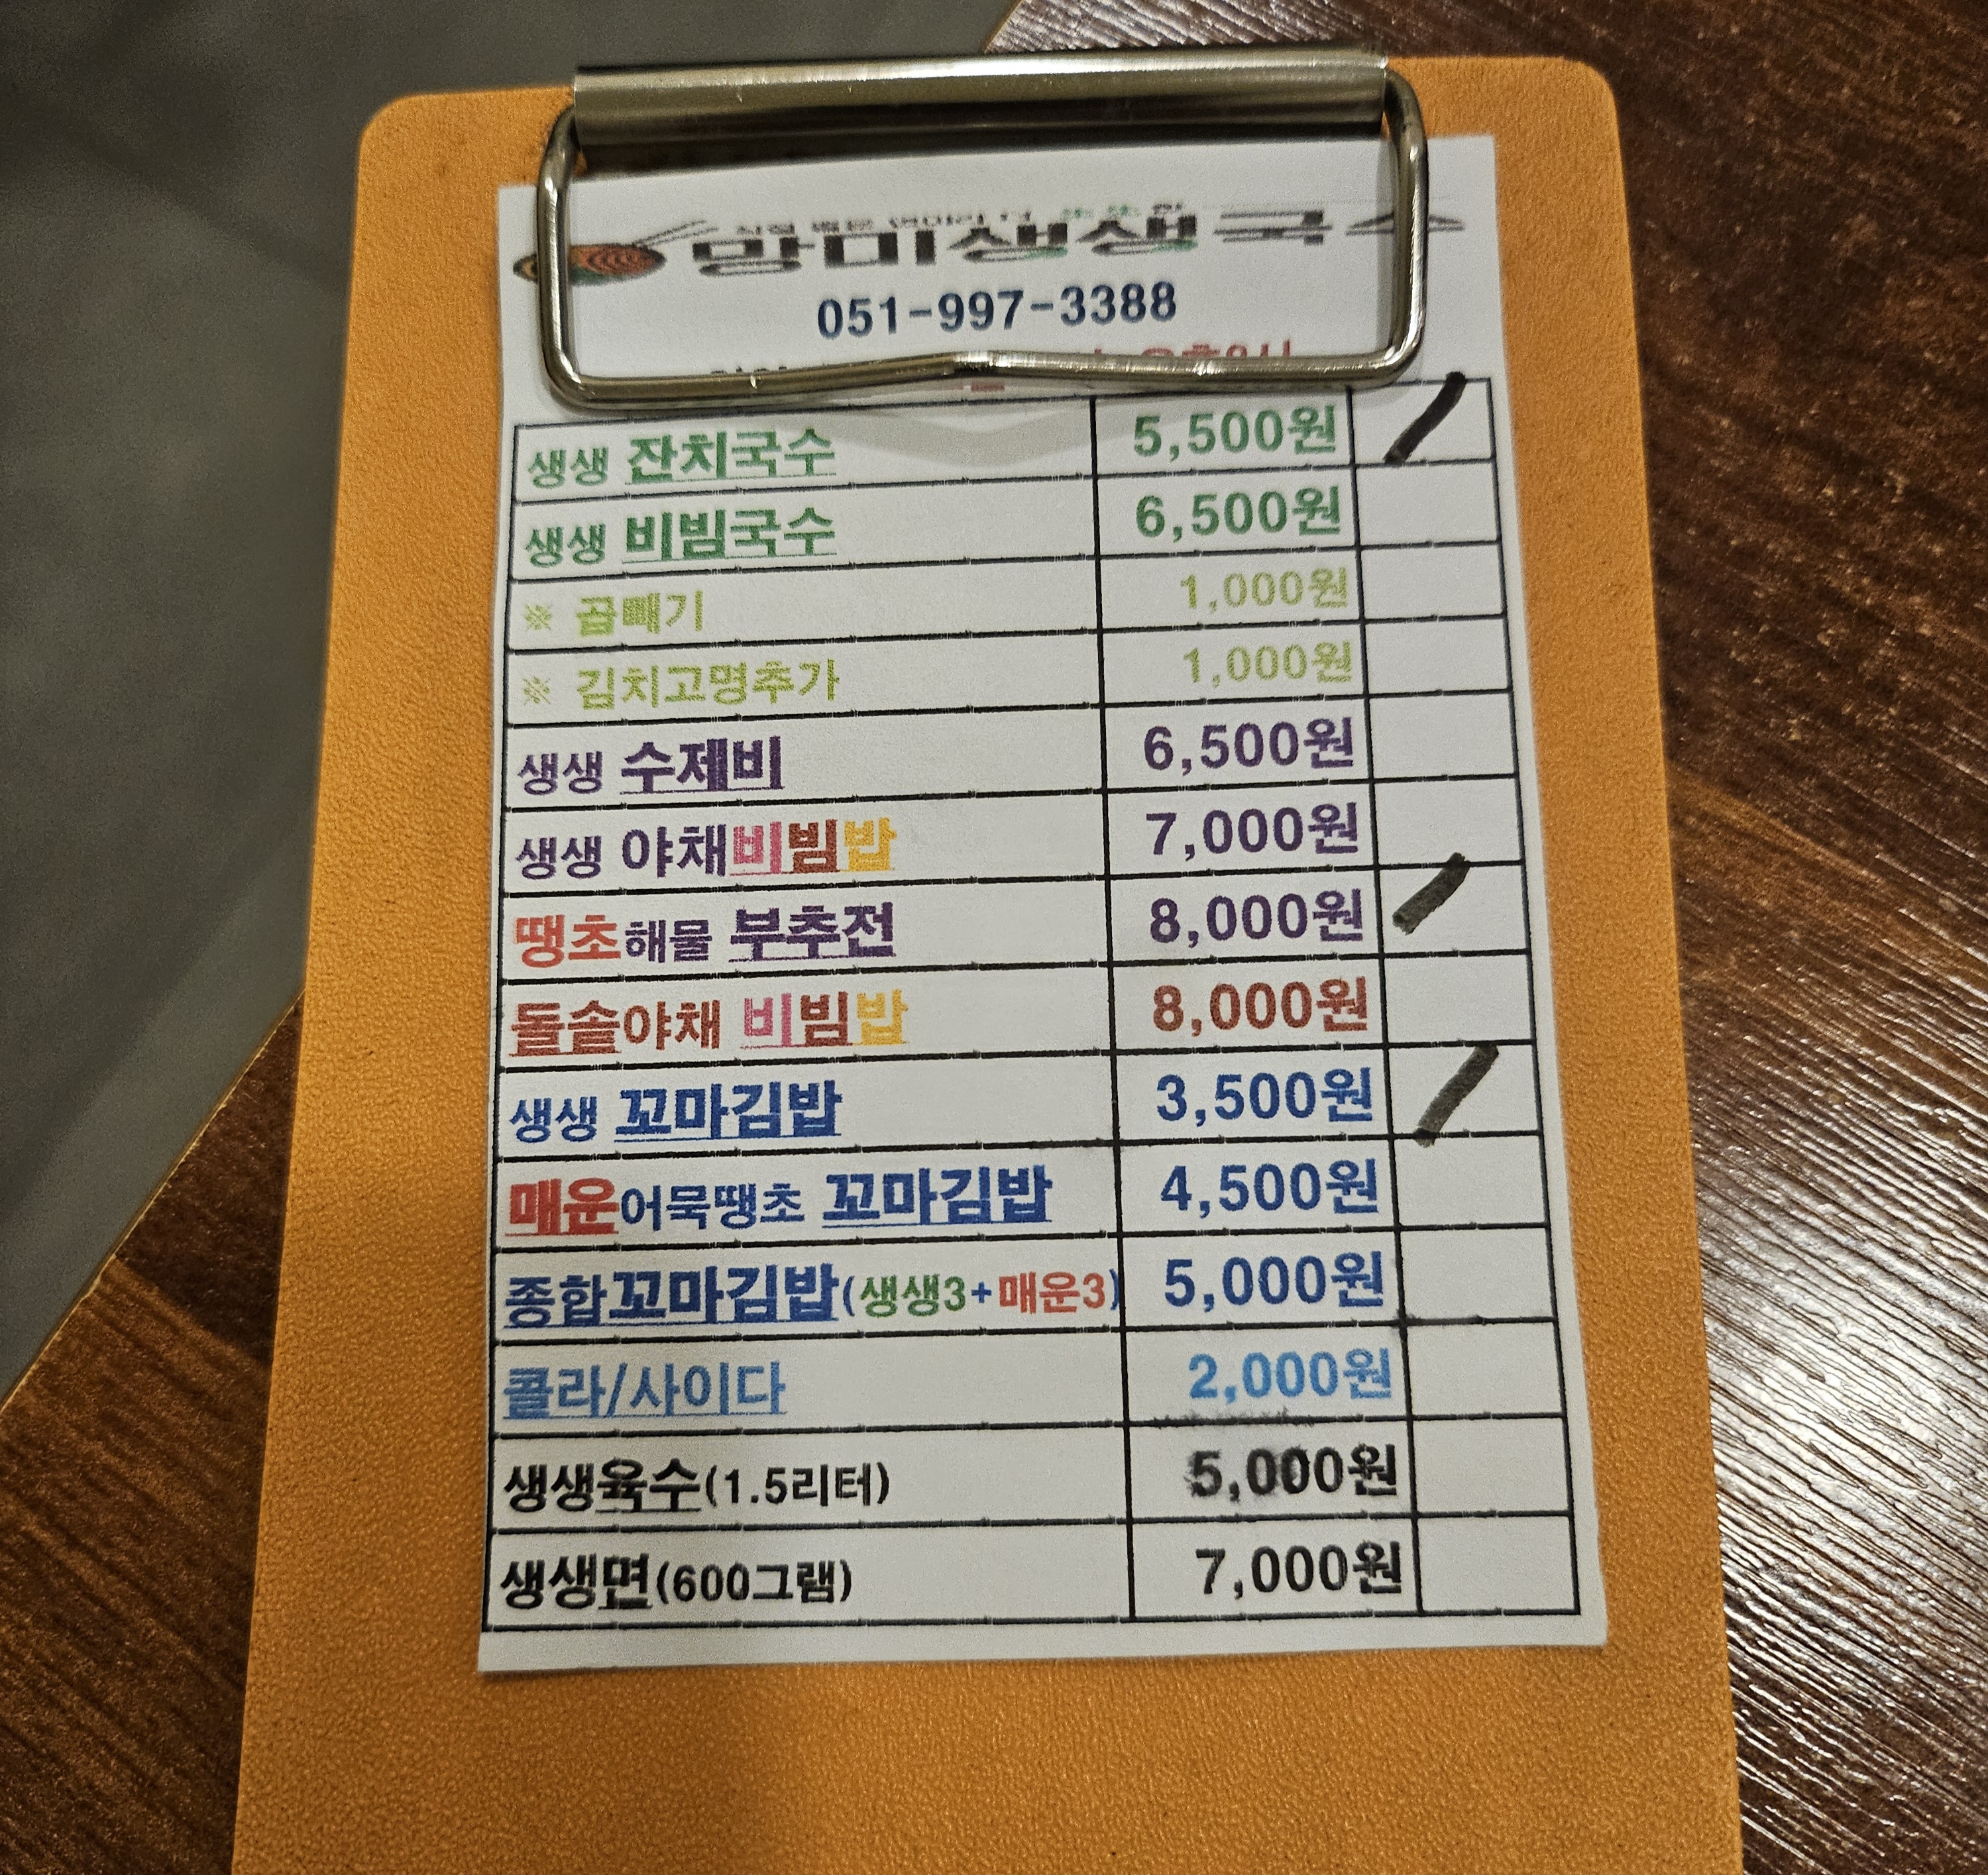 망미생생국수
051-997-3388
생생 잔치국수 5,500원
생생 비빔국수 6,500원
※ 곱빼기 1,000원
※ 김치고명추가 1,000원
생생 수제비 6,500원
생생 야채비빔밥 7,000원
땡초해물 부추전 8,000원
돌솥야채 비빔밥 8,000원
생생 꼬마김밥 3,500원
매운어묵땡초 꼬마김밥 4,500원
종합꼬마김밥(생생3+매운3) 5,000원
콜라/사이다 2,000원
생생육수(1.5리터) 5,000원
생생면(600그램) 7,000원